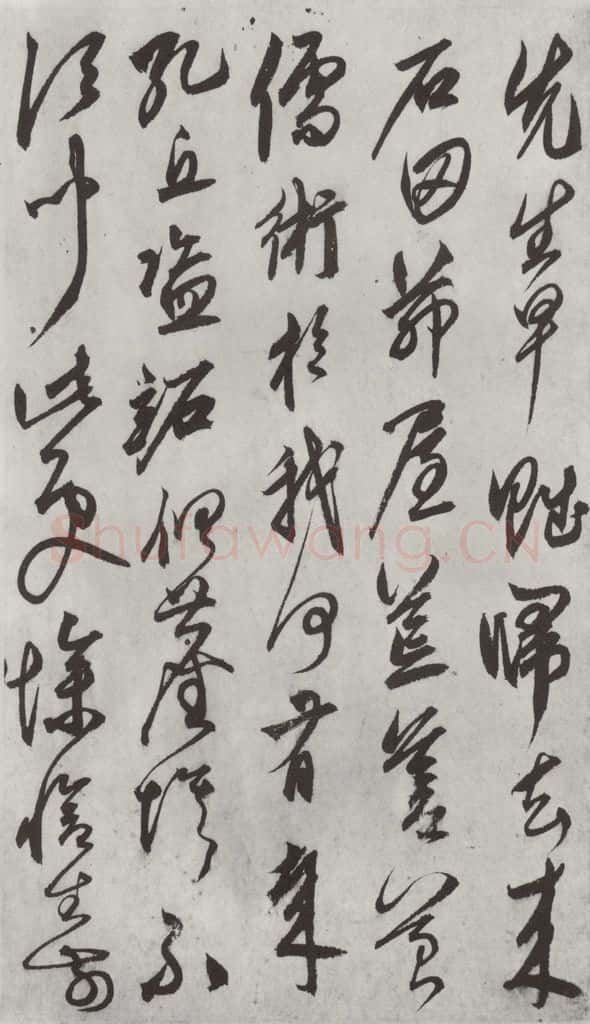 先生早賦歸去来
石田茅屋荒蒼苔
儒術於我何有哉
孔丘盜跖俱塵埃不
須聞此意慘愴生前
Shufawang.CN